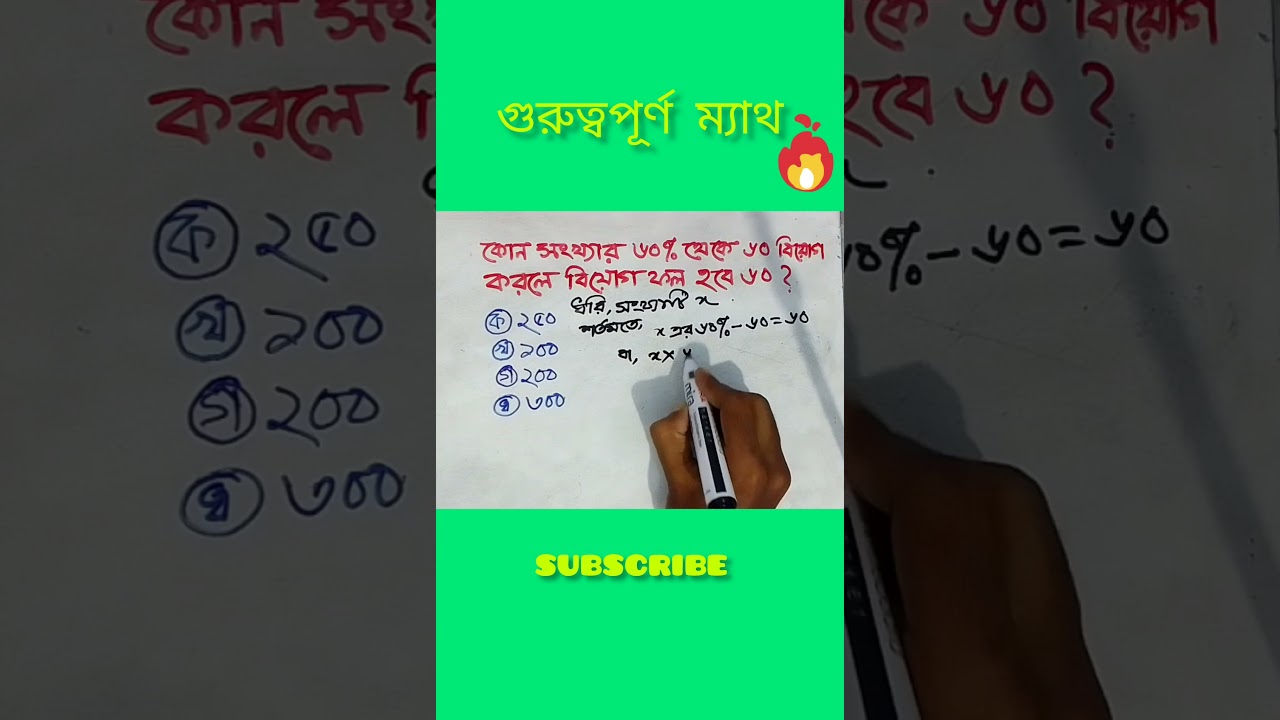 গুরুত্বপূর্ণ ম্যাথ
কোন সংখ্যার ৬০% থেকে ৬০ বিয়োগ
করলে বিয়োগ ফল হবে ৬০ ?
ধরি, সংখ্যাটি x
শর্তমতে, x এর ৬০% - ৬০ = ৬০
বা, x×
ক ২৫০
খ ১০০
গ ২০০
ঘ ৩০০
SUBSCRIBE